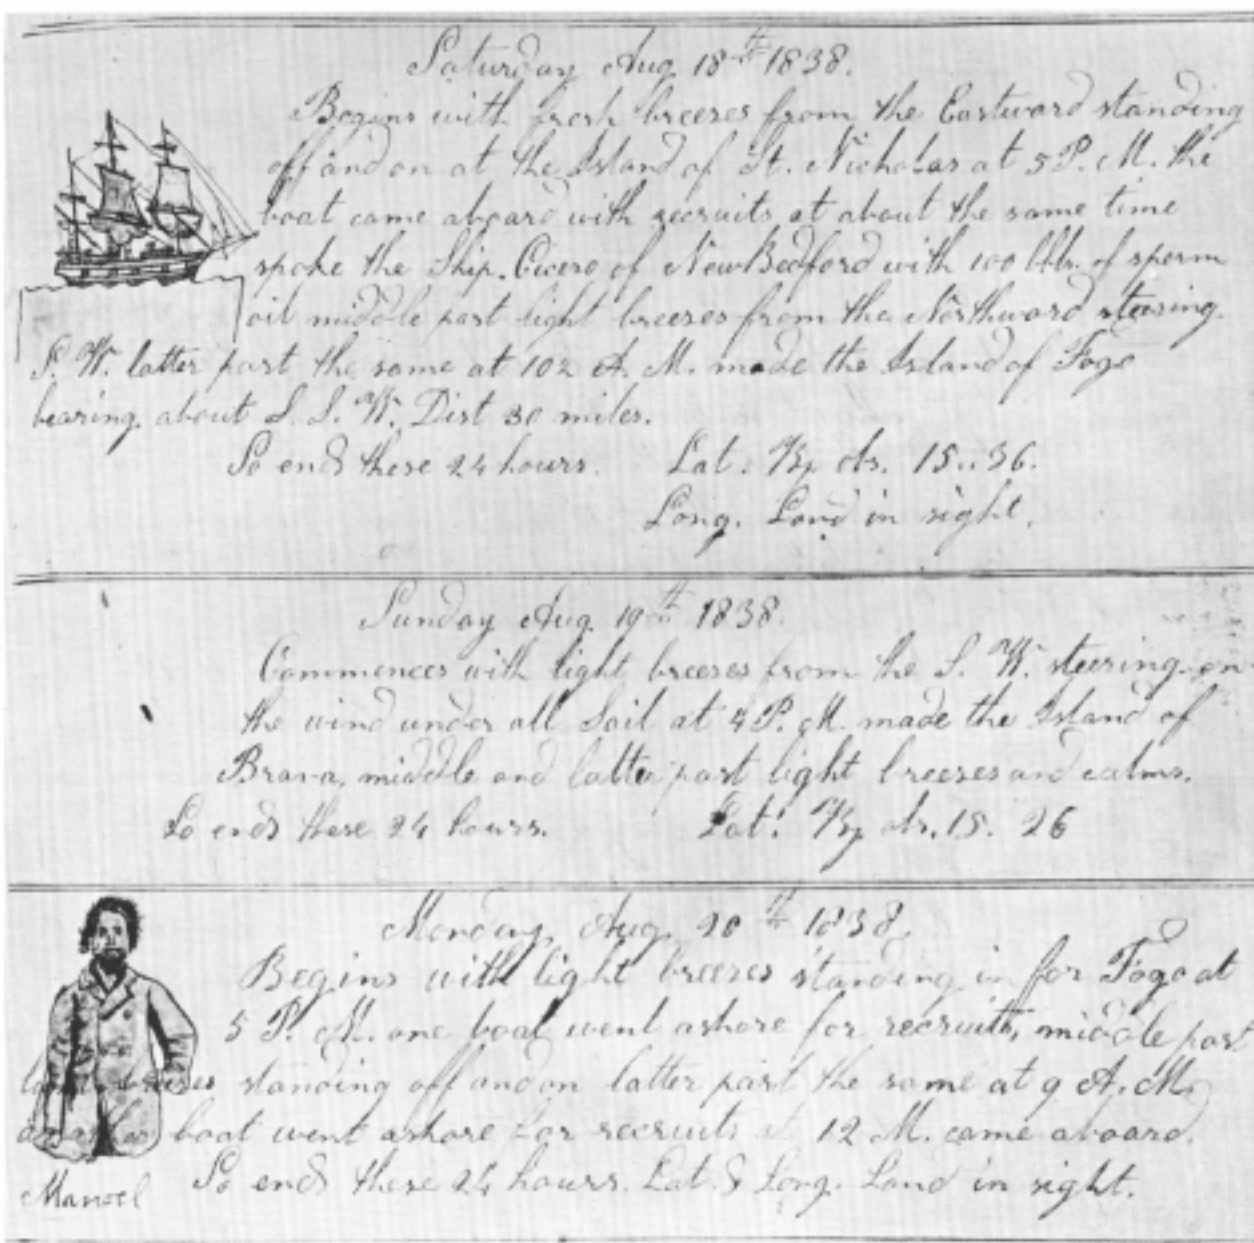 Saturday Aug 18th 1838.
Begins with fresh breezes from the Eastward standing
off and on at the Island of St. Nicholas at 5 P. M. the
boat came aboard with recruits at about the same time
spoke the Ship. Cicero of New Bedford with 100 bbls. of sperm
oil middle part light breezes from the Northward steering.
S. W. latter part the same at 102 A. M. made the Island of Fogo
bearing about S. S. W. Dist 30 miles.
So ends these 24 hours. Lat. By obs. 15..36.
Long. Land in sight.
Sunday Aug 19th 1838.
Commences with light breezes from the S. W. steering on
the wind under all Sail at 4 P. M. made the Island of
Brava, middle and latter part light breezes and calms.
So ends these 24 hours. Lat. By obs. 15. 26
Monday, Aug 20th 1838.
Begins with light breezes standing in for Fogo at
5 P. M. one boat went ashore for recruits, middle part
breezes standing off and on latter part the same at 9 A. M.
boat went ashore for recruits at 12 M. came aboard.
So ends these 24 hours. Lat. & Long. Land in sight.
Manoel